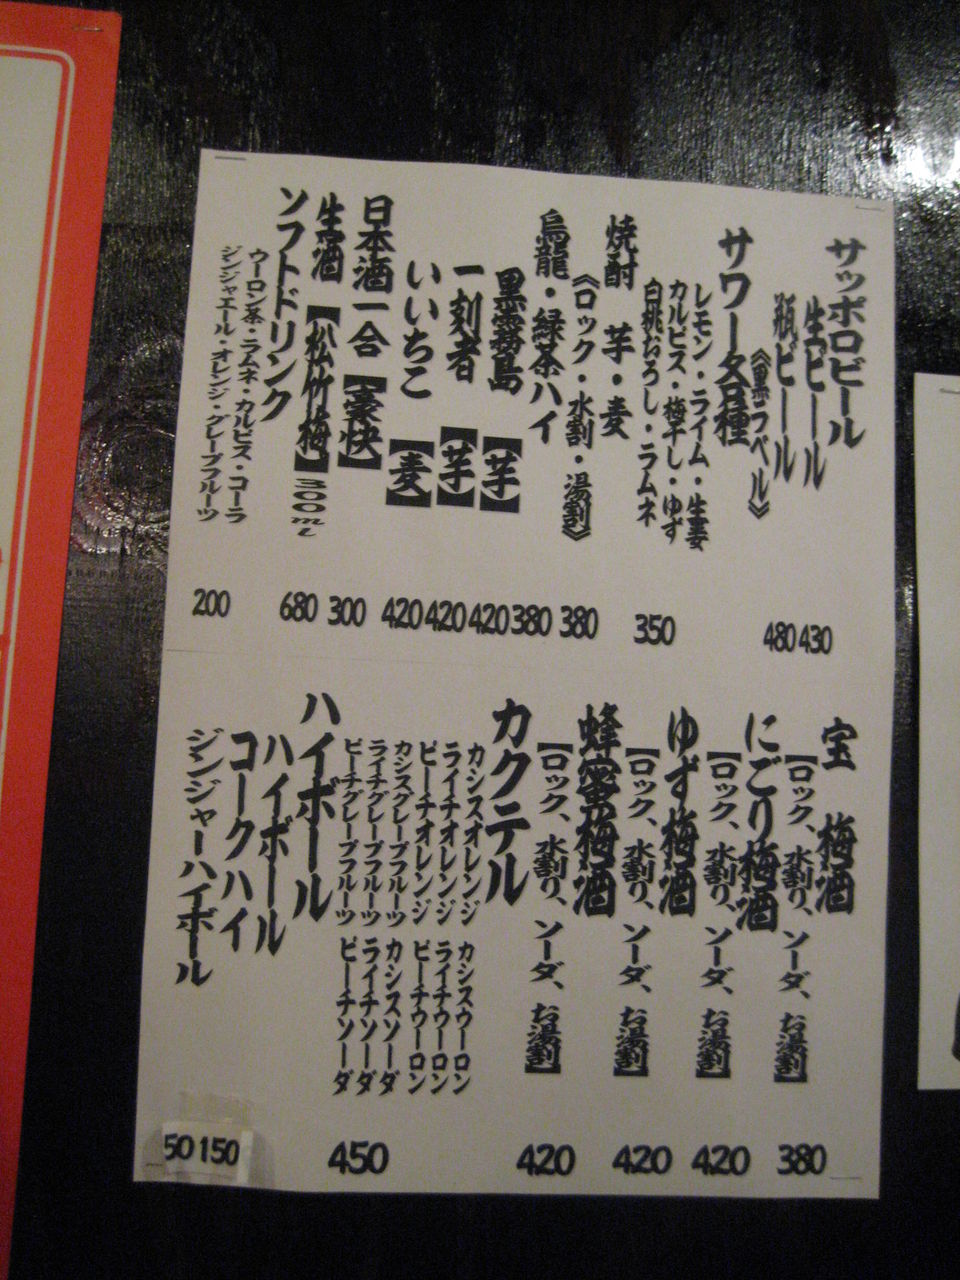 サッポロビール
生ビール 430
瓶ビール 480
《黒ラベル》
サワー各種
レモン・ライム・生姜
カルピス・梅干し・ゆず
白桃おろし・ラムネ
350
焼酎 芋・麦 380
《ロック・水割・湯割》
烏龍・緑茶ハイ 380
黒霧島 【芋】 420
一刻者 【芋】 420
いいちこ 【麦】 420
日本酒一合 【豪快】 300
生酒 【松竹梅】300ml 680
ソフトドリンク
ウーロン茶・ラムネ・カルピス・コーラ
ジンジャエール・オレンジ・グレープフルーツ
200
宝 梅酒
【ロック、水割り、ソーダ、お湯割】 380
にごり梅酒
【ロック、水割り、ソーダ、お湯割】 420
ゆず梅酒
【ロック、水割り、ソーダ、お湯割】 420
蜂蜜梅酒
【ロック、水割り、ソーダ、お湯割】 420
カクテル
カシスオレンジ カシスウーロン
ライチオレンジ ライチウーロン
ピーチオレンジ ピーチウーロン
カシスグレープフルーツ カシスソーダ
ライチグレープフルーツ ライチソーダ
ピーチグレープフルーツ ピーチソーダ
450
ハイボール
ハイボール
コークハイ
ジンジャーハイボール
150
50